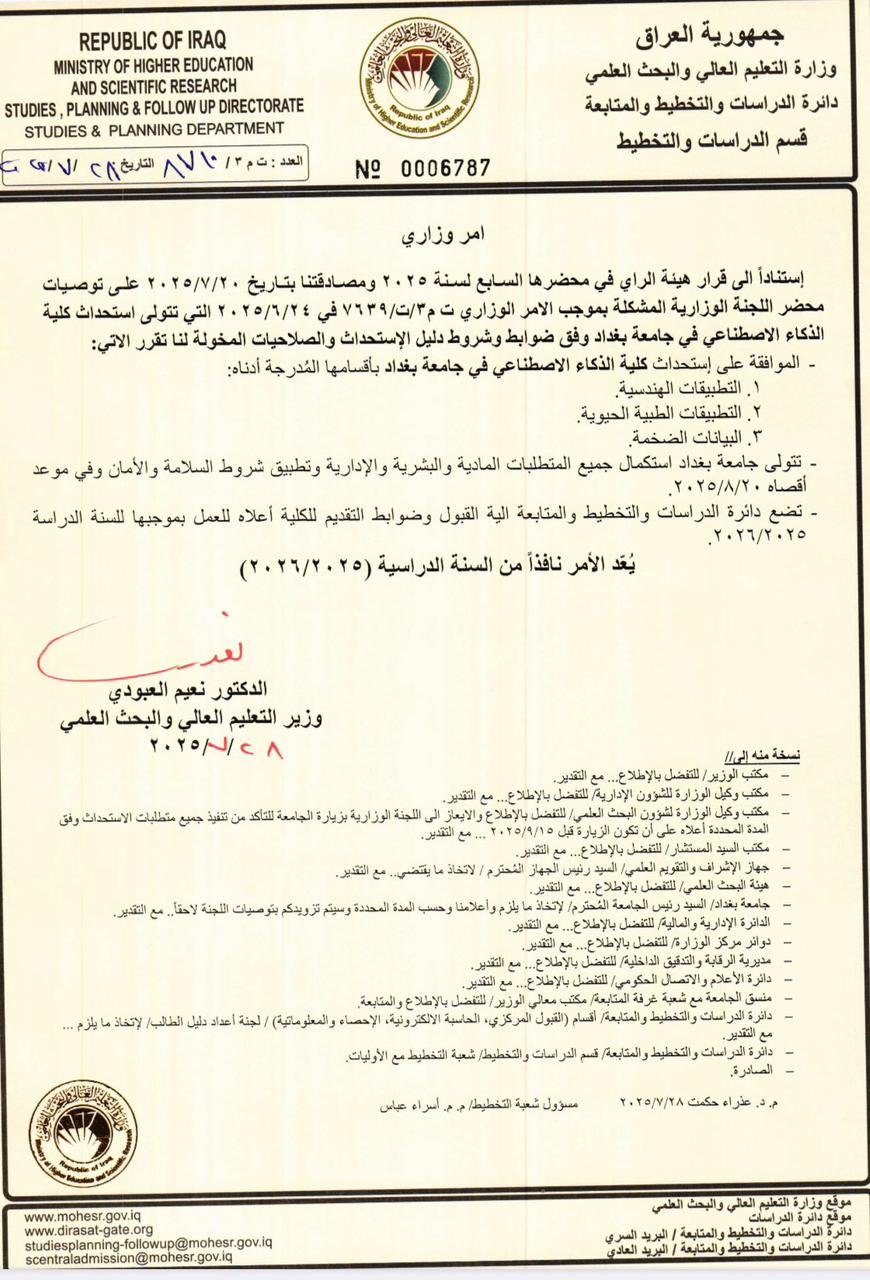 REPUBLIC OF IRAQ
MINISTRY OF HIGHER EDUCATION
AND SCIENTIFIC RESEARCH
STUDIES , PLANNING & FOLLOW UP DIRECTORATE
STUDIES & PLANNING DEPARTMENT
جمهورية العراق
وزارة التعليم العالي والبحث العلمي
دائرة الدراسات والتخطيط والمتابعة
قسم الدراسات والتخطيط
Ministry of Higher Education and Scientific Research
Republic of Iraq
العدد : ت م ٣ / ٨٧١٠ التاريخ ٢٨/٧/
Nº 0006787
امر وزاري
إستناداً الى قرار هيئة الراي في محضرها السابع لسنة ٢٠٢٥ ومصادقتنا بتاريخ ٢٠٢٥/٧/٢٠ على توصيات
محضر اللجنة الوزارية المشكلة بموجب الامر الوزاري ت م٣/ت/٧٦٣٩ في ٢٠٢٥/٦/٢٤ التي تتولى استحداث كلية
الذكاء الاصطناعي في جامعة بغداد وفق ضوابط وشروط دليل الإستحداث والصلاحيات المخولة لنا تقرر الاتي:
- الموافقة على إستحداث كلية الذكاء الاصطناعي في جامعة بغداد بأقسامها المُدرجة أدناه:
١. التطبيقات الهندسية.
٢. التطبيقات الطبية الحيوية.
٣. البيانات الضخمة.
- تتولى جامعة بغداد استكمال جميع المتطلبات المادية والبشرية والإدارية وتطبيق شروط السلامة والأمان وفي موعد
أقصاه ٢٠٢٥/٨/٢٠.
- تضع دائرة الدراسات والتخطيط والمتابعة الية القبول وضوابط التقديم للكلية أعلاه للعمل بموجبها للسنة الدراسة
٢٠٢٦/٢٠٢٥.
يُعّد الأمر نافذاً من السنة الدراسية (٢٠٢٦/٢٠٢٥)
الدكتور نعيم العبودي
وزير التعليم العالي والبحث العلمي
٢٠٢٥/٧/٢٨
نسخة منه إلى//
- مكتب الوزير/ للتفضل بالإطلاع... مع التقدير.
- مكتب وكيل الوزارة للشؤون الإدارية/ للتفضل بالإطلاع... مع التقدير.
- مكتب وكيل الوزارة لشؤون البحث العلمي/ للتفضل بالإطلاع والايعاز الى اللجنة الوزارية بزيارة الجامعة للتأكد من تنفيذ جميع متطلبات الاستحداث وفق
المدة المحددة أعلاه على أن تكون الزيارة قبل ٢٠٢٥/٩/١٥ ... مع التقدير.
- مكتب السيد المستشار/ للتفضل بالإطلاع... مع التقدير.
- جهاز الإشراف والتقويم العلمي/ السيد رئيس الجهاز المُحترم / لاتخاذ ما يقتضي.. مع التقدير.
- هيئة البحث العلمي/ للتفضل بالإطلاع... مع التقدير.
- جامعة بغداد/ السيد رئيس الجامعة المُحترم/ لإتخاذ ما يلزم وأعلامنا وحسب المدة المحددة وسيتم تزويدكم بتوصيات اللجنة لاحقاً.. مع التقدير.
- الدائرة الإدارية والمالية/ للتفضل بالإطلاع... مع التقدير.
- دوائر مركز الوزارة/ للتفضل بالإطلاع... مع التقدير.
- مديرية الرقابة والتدقيق الداخلية/ للتفضل بالإطلاع... مع التقدير.
- دائرة الأعلام والاتصال الحكومي/ للتفضل بالإطلاع... مع التقدير.
- منسق الجامعة مع شعبة غرفة المتابعة/ مكتب معالي الوزير/ للتفضل بالإطلاع والمتابعة.
- دائرة الدراسات والتخطيط والمتابعة/ أقسام (القبول المركزي، الحاسبة الالكترونية، الإحصاء والمعلوماتية) / لجنة أعداد دليل الطالب/ لإتخاذ ما يلزم ...
مع التقدير.
- دائرة الدراسات والتخطيط والمتابعة/ قسم الدراسات والتخطيط/ شعبة التخطيط مع الأوليات.
- الصادرة.
م. د. عذراء حكمت ٢٠٢٥/٧/٢٨ مسؤول شعبة التخطيط/ م. م. أسراء عباس
Republic of Iraq
موقع وزارة التعليم العالي والبحث العلمي
موقع دائرة الدراسات
دائرة الدراسات والتخطيط والمتابعة / البريد السري
دائرة الدراسات والتخطيط والمتابعة / البريد العادي
www.mohesr.gov.iq
www.dirasat-gate.org
studiesplanning-followup@mohesr.gov.iq
scentraladmission@mohesr.gov.iq